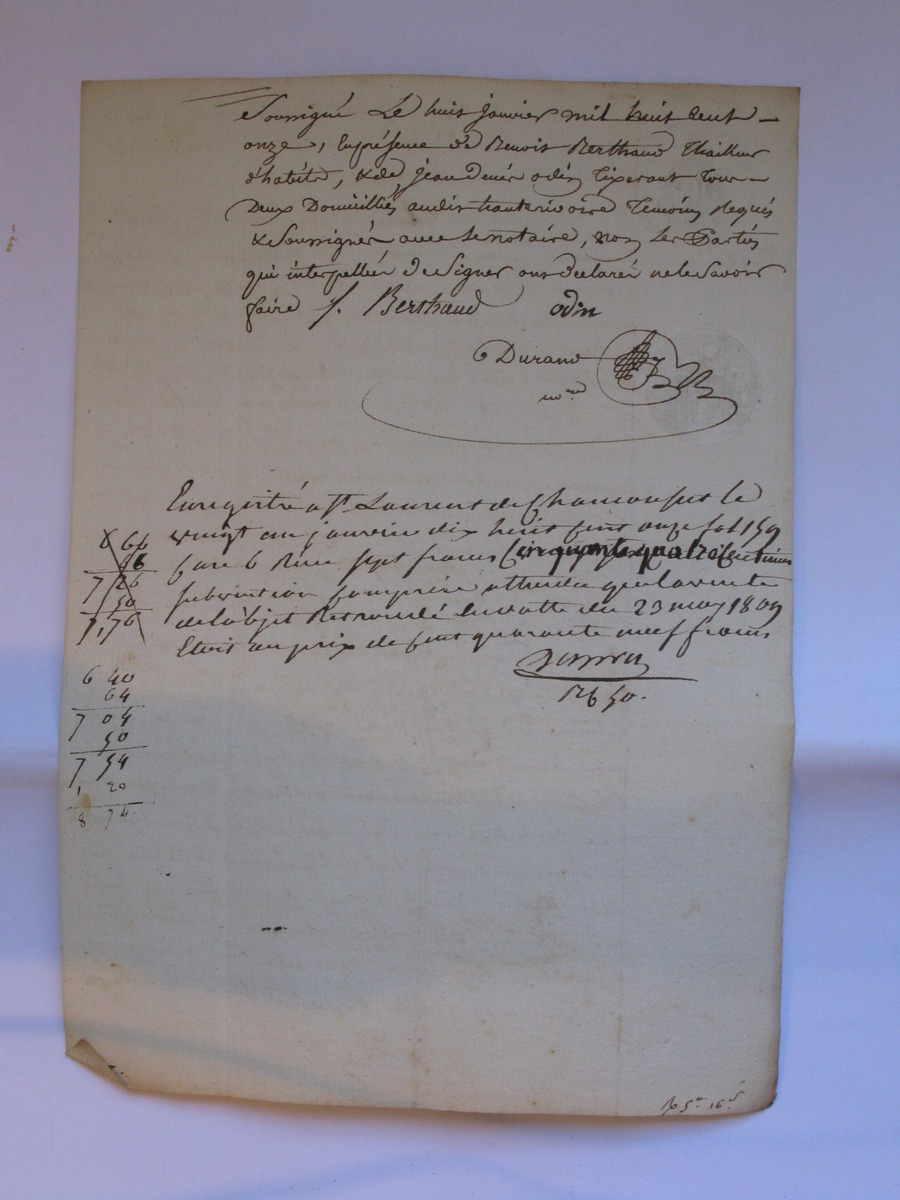 Soussigné Le huis janvier mil huit Cent
onze, En présence de Benoit Berthaud Thailleur
d'habits, & de jean denis odin Tixerant Tour
Deux Domiciliés audit hauterivoire Temoins Requis
& Soussignés avec le notaire, non Les Parties
qui interpellées de Signer ont declaré ne le Savoir
faire f. Berthaud odin
Durand
nore
Enregistré a St. Laurent de Chamousset le
vingt un janvier dix huit cent onze fol 159
Case 6 Reçu sept francs Cinquante quatre Centimes
subvention Comprise attendu que la vente
de l'objet Retrocédé en datte du 23 may 1809
Etoit au prix de Cent quarante neuf francs
6 66
66
7 26
50
7,76
6 40
64
7 04
50
7 54
1 20
8 74